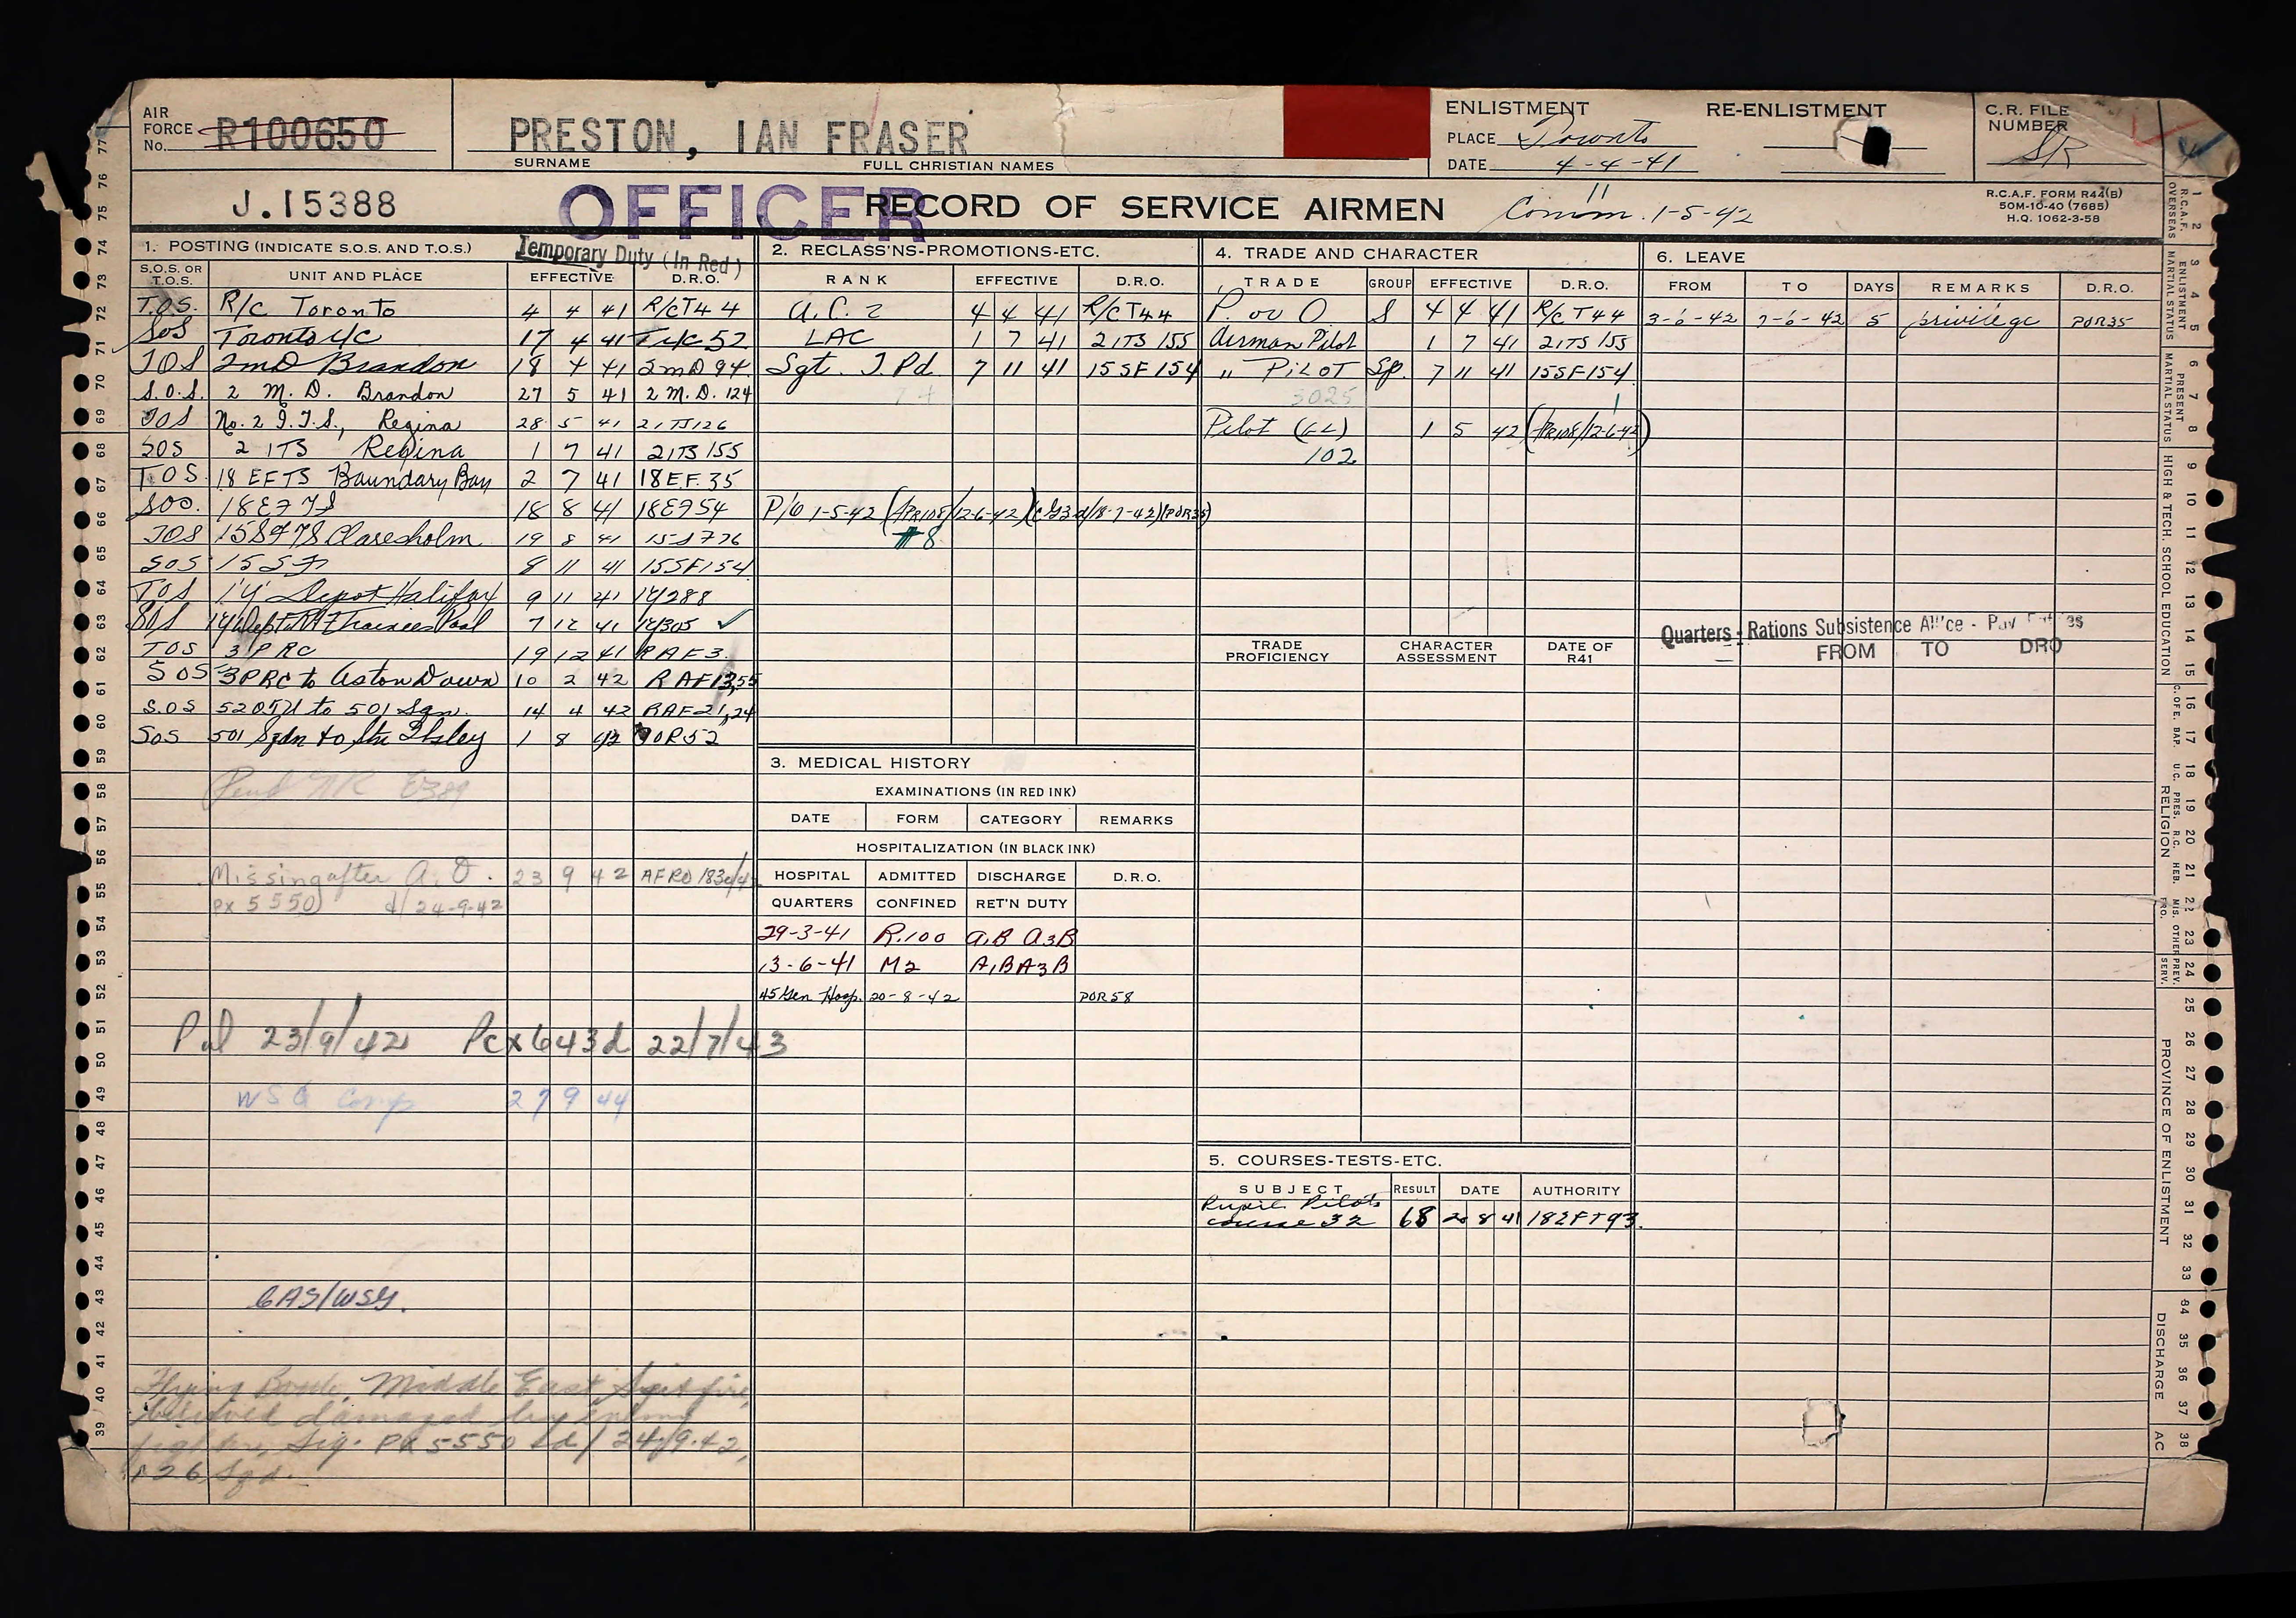 AIR FORCE No. R100650
PRESTON, IAN FRASER
SURNAME FULL CHRISTIAN NAMES
ENLISTMENT RE-ENLISTMENT
PLACE Toronto
DATE 4-4-41
C.R. FILE NUMBER
SR
J.15388
OFFICER
RECORD OF SERVICE AIRMEN
Comm. 1-5-42
R.C.A.F. FORM R44(B)
50M-10-40 (7685)
H.Q. 1062-3-58
1. POSTING (INDICATE S.O.S. AND T.O.S.)
Temporary Duty (In Red)
S.O.S. OR T.O.S. UNIT AND PLACE EFFECTIVE D.R.O.
T.O.S. R/C Toronto 4 4 41 R/CT44
SOS Toronto 17 4 41 52
TOS 2MD Brandon 18 4 41 2MD 94
S.O.S. 2 M.D. Brandon 27 5 41 2 M.D. 124
TOS No. 2 I.T.S., Regina 28 5 41 2ITS126
SOS 2 ITS Regina 1 7 41 2ITS 155
T.O.S. 18 EFTS Boundary Bay 2 7 41 18 E.F. 35
SOS. 18EFTS 18 8 41 18EF54
TOS 15SFTS Claresholm 19 8 41
SOS 15SF 8 11 41 15SF154
TOS 1'Y' Depot Halifax 9 11 41 1Y288
SOS 1Y Dept Trainees Pool 7 12 41 1Y305 ✓
TOS 3 PRC 19 12 41 RAF3.
SOS 3PRC to Aston Down 10 2 42 RAF13,55
S.O.S 52OTU to 501 Sqn. 14 4 42 RAF21,24
SOS 501 Sqdn to Stn Ibsley 1 8 42 POR52
E389
Missing after A.O. 23 9 42 AFRO
PX 5550 d/ 24-9-42
23/9/42 Pcx643d 22/7/43
WSG Comp 27 9 44
CAS/WSG.
Flying Battle, Middle East, Spitfire,
believed damaged by enemy
fighter, Sig. PX5550 d/ 24/9.42,
126 Sqd.
2. RECLASS'NS-PROMOTIONS-ETC.
RANK EFFECTIVE D.R.O.
A.C.2 4 4 41 R/CT44
LAC 1 7 41 2ITS 155
Sgt. T.Pd. 7 11 41 15SF154
P/O 1-5-42 (APR108/12-6-42) (POR35)
#8
3. MEDICAL HISTORY
EXAMINATIONS (IN RED INK)
DATE FORM CATEGORY REMARKS
HOSPITALIZATION (IN BLACK INK)
HOSPITAL ADMITTED DISCHARGE D.R.O.
QUARTERS CONFINED RET'N DUTY
29-3-41 R.100 A1B A3B
13-6-41 M2 A1BA3B
45 Gen Hosp. 20-8-42 POR58
4. TRADE AND CHARACTER
TRADE GROUP EFFECTIVE D.R.O.
P. or O S 4 4 41 R/CT44
Airman Pilot 1 7 41 2ITS 155
" PILOT Sp. 7 11 41 15SF154
3025
Pilot 1 5 42 (APR108/12-6-42)
102
TRADE PROFICIENCY CHARACTER ASSESSMENT DATE OF R41
5. COURSES-TESTS-ETC.
SUBJECT RESULT DATE AUTHORITY
Pupil Pilots
course 32 68 20 8 41 18EFT93.
6. LEAVE
FROM TO DAYS REMARKS D.R.O.
3-6-42 7-6-42 5 privilege POR35
Quarters - Rations Subsistence All'ce - Pay
FROM TO DRO
77 76 75 74 73 72 71 70 69 68 67 66 65 64 63 62 61 60 59 58 57 56 55 54 53 52 51 50 49 48 47 46 45 44 43 42 41 40 39
1 2 3 4 5 6 7 8 9 10 11 12 13 14 15 16 17 18 19 20 21 22 23 24 25 26 27 28 29 30 31 32 33 34 35 36 37 38
R.C.A.F. OVERSEAS
ENLISTMENT MARTIAL STATUS
PRESENT MARTIAL STATUS
HIGH & TECH. SCHOOL EDUCATION
C. OF E. BAP. U.C. PRES. R.C. HEB. MIS. PRO. OTHER
RELIGION
PREV. SERV.
PROVINCE OF ENLISTMENT
DISCHARGE
AC